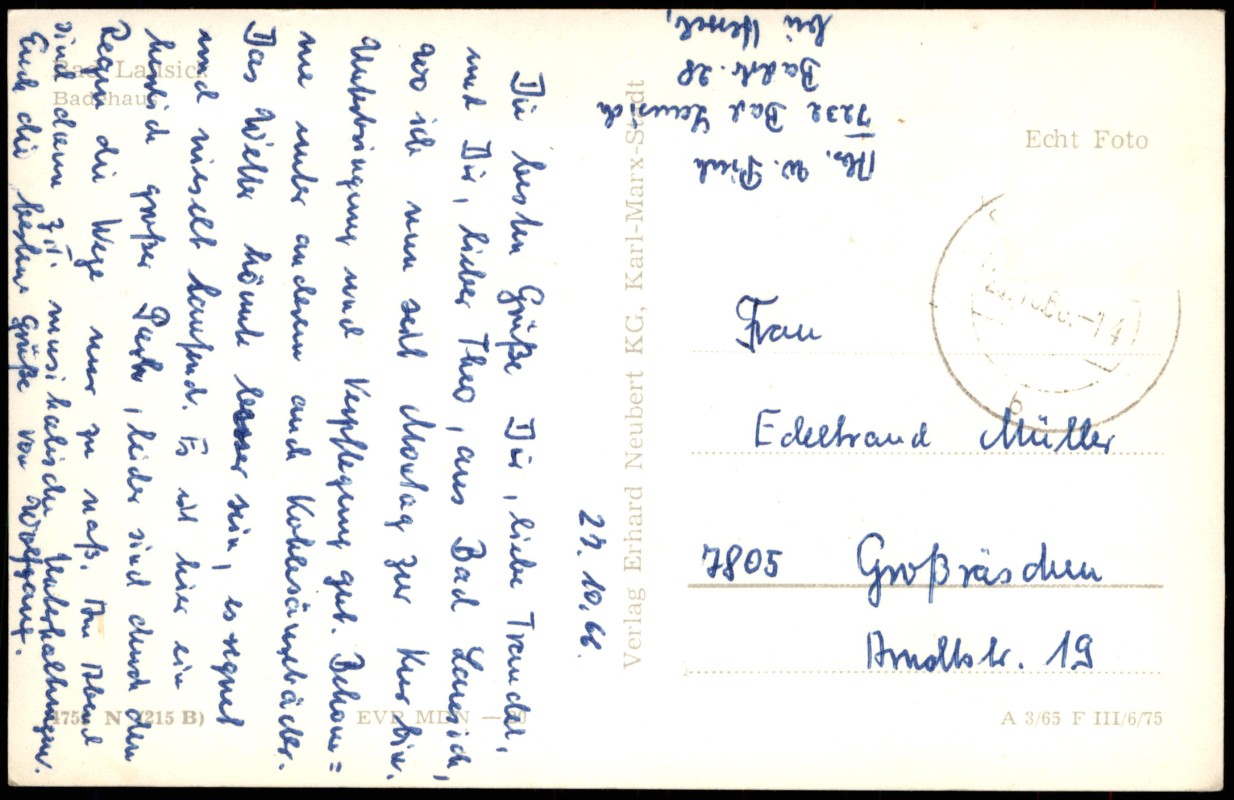 Bad Lausick
Badehaus
27. 10. 66.
Die besten Grüße Dir, liebe Traudel,
und Dir, lieber Theo, aus Bad Lausick,
wo ich nun seit Montag zur Kur bin.
Unterbringung und Verpflegung gut. Bekom=
me unter anderem auch Kohlesäurebäder.
Das Wetter könnte besser sein, es regnet
und nieselt laufend. Es ist hier ein
herrlich großer Park, leider sind durch den
Regen die Wege nur zu naß. Am Abend
sind dann z.T. musikalische Unterhaltungen.
Euch die besten Grüße von Wolfgang.
4175 N (215 B)
EVP MDN
Verlag Erhard Neubert KG, Karl-Marx-Stadt
Abs. W.
7232 Bad Lausick
Badstr. 28
bei Hessel,
Echt Foto
Frau
Edeltraud Müller
7805 Großräschen
Arndtstr. 19
A 3/65 F III/6/75